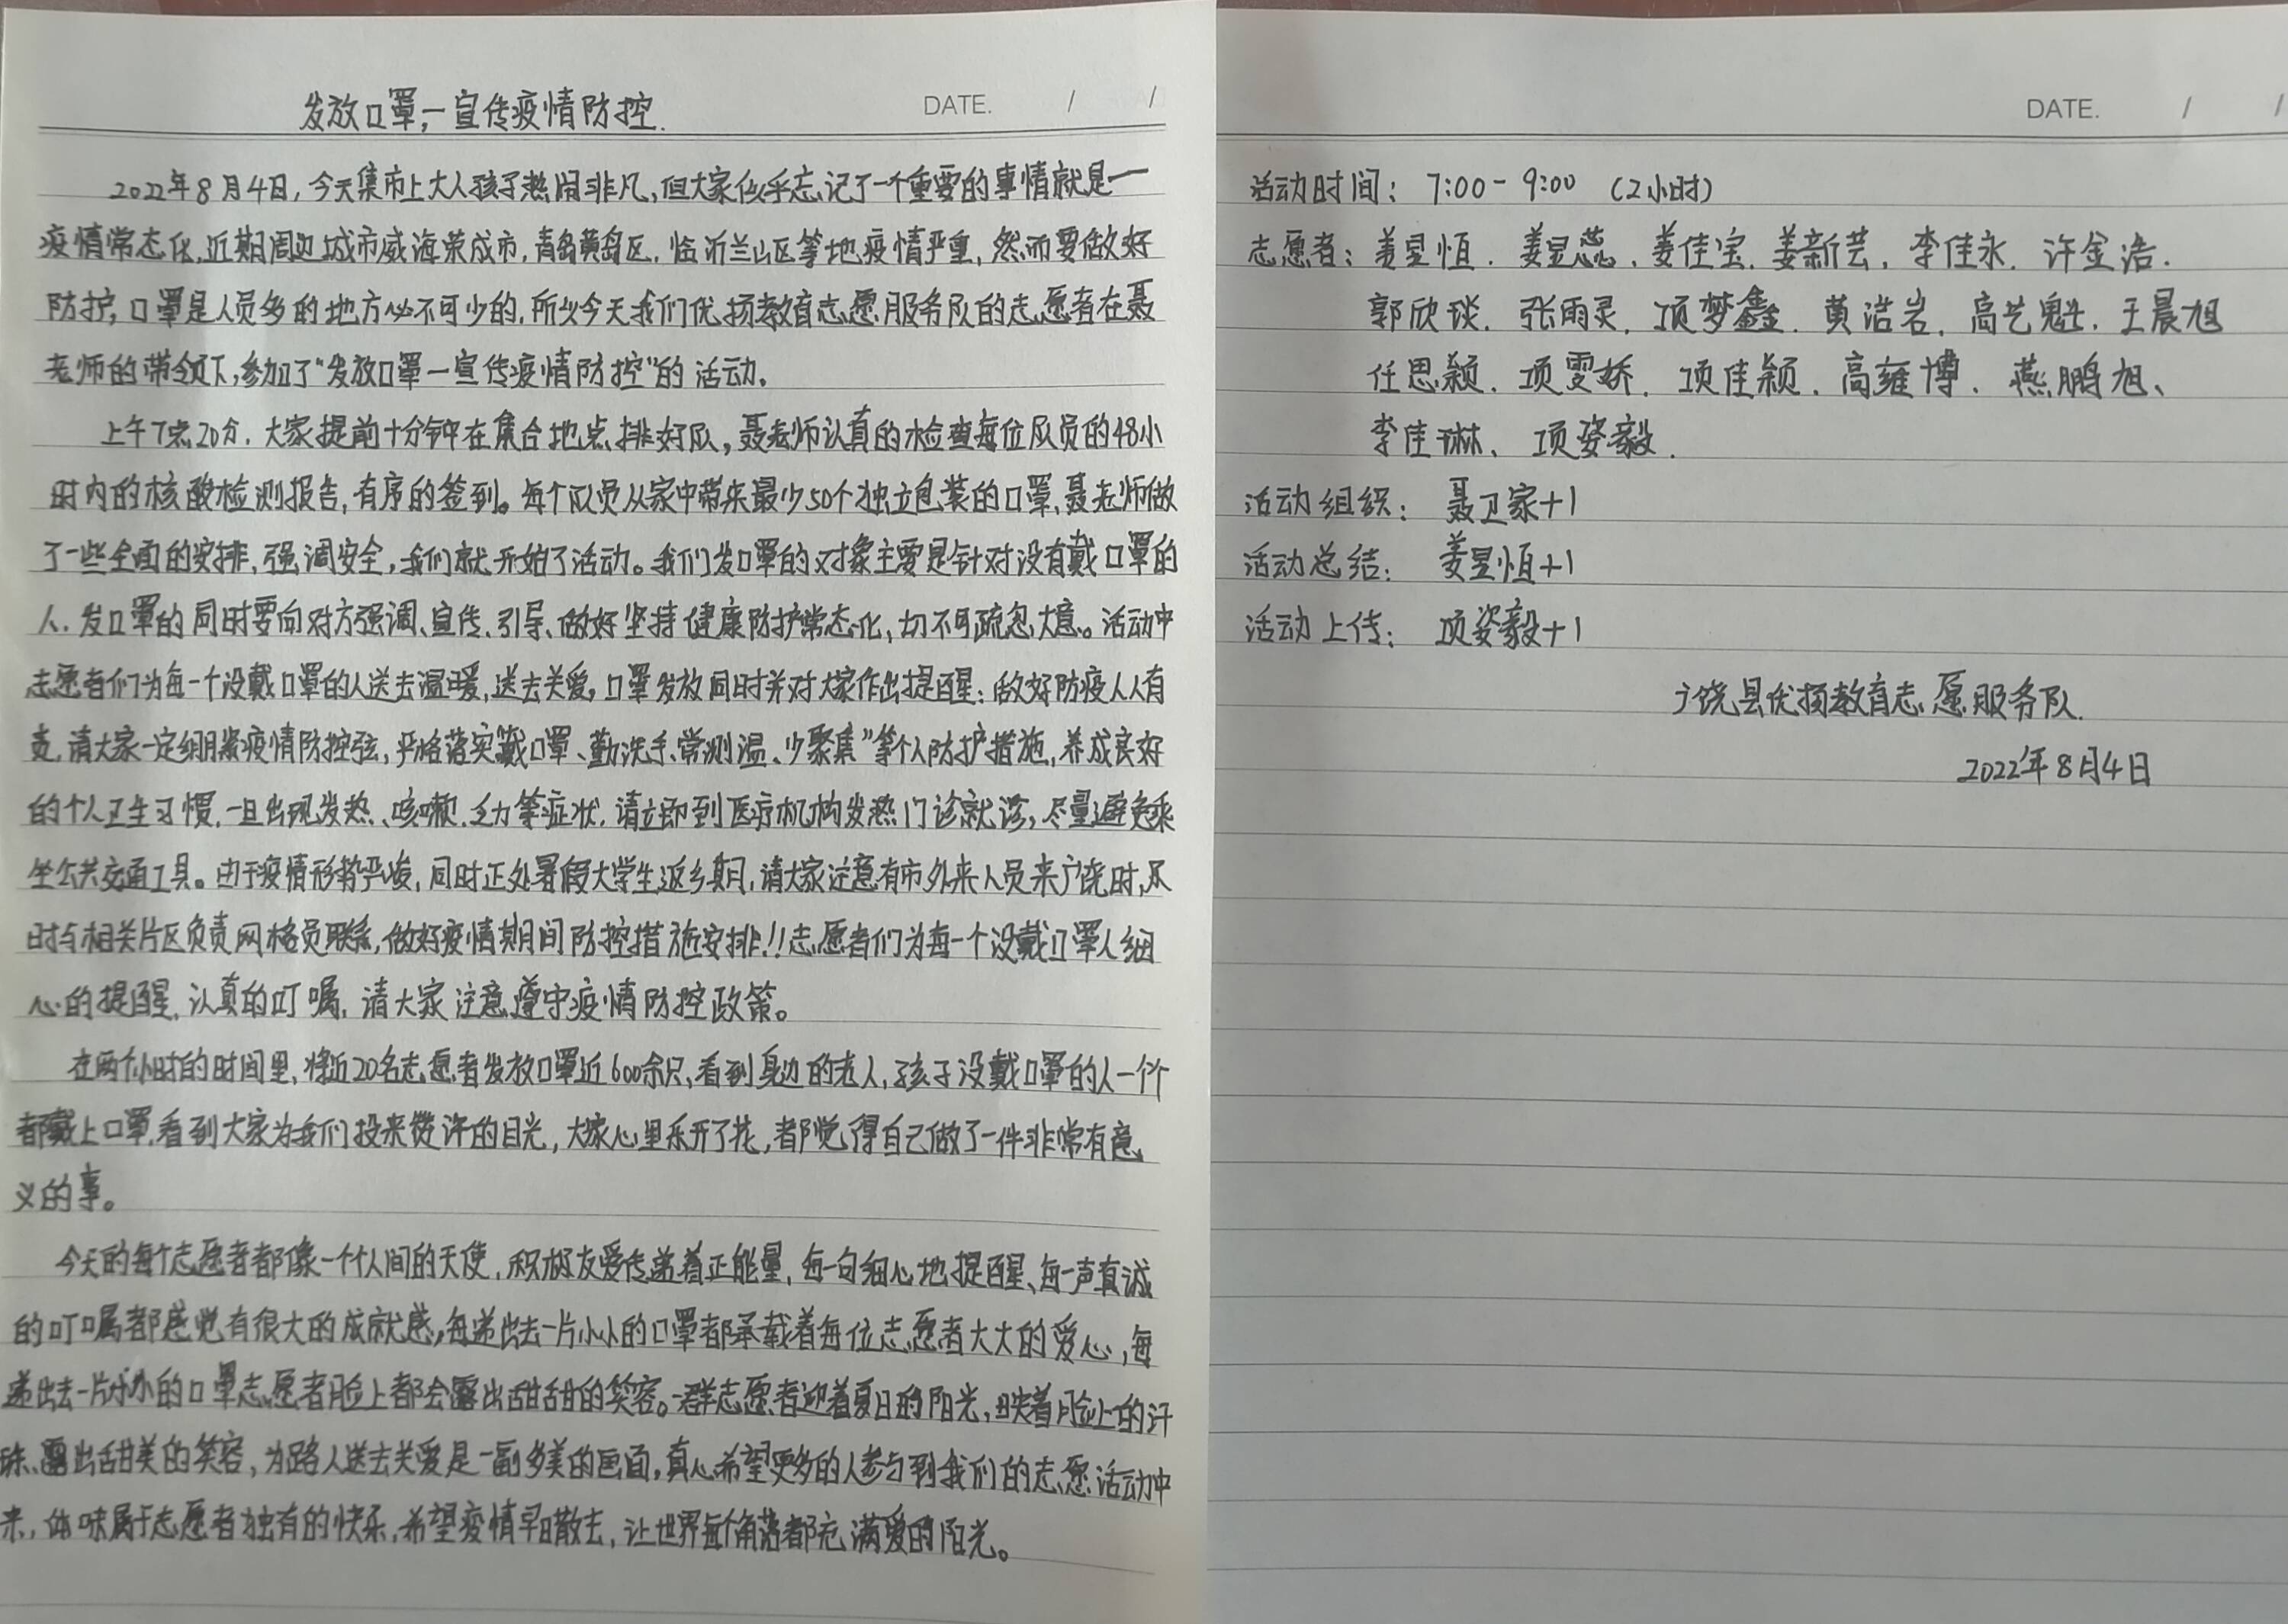 发放口罩,一宣传疫情防控.
DATE. / /
2022年8月4日,今天集市上大人孩子热闹非凡,但大家似乎忘记了一个重要的事情就是一
疫情常态化,近期周边城市威海荣成市,青岛黄岛区,临沂兰山区等地疫情严重,然而要做好
防护,口罩是人员多的地方必不可少的,所以今天我们优扬教育志愿服务队的志愿者在聂
老师的带领下,参加了“发放口罩一宣传疫情防控”的活动.
上午7点20分,大家提前十分钟在集合地点排好队,聂老师认真的检查每位队员的48小
时内的核酸检测报告,有序的签到。每个队员从家中带来最少50个独立包装的口罩,聂老师做
了一些全面的安排,强调安全,我们就开始了活动。我们发口罩的对象主要是针对没有戴口罩的
人.发口罩的同时要向对方强调、宣传、引导、做好坚持健康防护常态化,切不可疏忽大意。活动中
志愿者们为每一个没戴口罩的人送去温暖,送去关爱,口罩发放同时并对大家作出提醒:做好防疫人人有
责,请大家一定绷紧疫情防控弦,严格落实戴口罩、勤洗手、常测温、少聚集”等个人防护措施,养成良好
的个人卫生习惯,一旦出现发热、咳嗽、乏力等症状,请立即到医疗机构发热门诊就诊,尽量避免乘
坐公共交通工具。由于疫情形势严峻,同时正处暑假大学生返乡期,请大家注意有市外来人员来广饶时,及
时与相关片区负责网格员联系,做好疫情期间防控措施安排!!志愿者们为每一个没戴口罩人细
心的提醒,认真的叮嘱,请大家注意遵守疫情防控政策。
在两个小时的时间里,将近20名志愿者发放口罩近600余只,看到身边的老人,孩子没戴口罩的人一个个
都戴上口罩,看到大家为我们投来赞许的目光,大家心里乐开了花,都觉得自己做了一件非常有意
义的事。
今天的每个志愿者都像一个个人间的天使,积极友爱传递着正能量,每一句细心地提醒、每一声真诚
的叮嘱都感觉有很大的成就感,每递出去一片小小的口罩都承载着每位志愿者大大的爱心,每
递出去一片小小的口罩志愿者脸上都会露出甜甜的笑容。一群志愿者迎着夏日的阳光,映着脸上的汗
珠、露出甜美的笑容,为路人送去关爱是一副多美的画面,真心希望更多的人参与到我们的志愿活动中
来,体味属于志愿者独有的快乐,希望疫情早日散去,让世界每个角落都充满爱的阳光。
DATE. / /
活动时间: 7:00-9:00 (2小时)
志愿者:姜昱恒.姜昱蕊.姜佳宝.姜新芸.李佳永.许金浩.
郭欣琰.张雨灵.项梦鑫.黄浩岩.高艺魁.王晨旭
任思颖.项雯娇.项佳颖.高雍博.燕鹏旭、
李佳琳、项姿毅.
活动组织: 聂卫家+1
活动总结: 姜昱恒+1
活动上传: 项姿毅+1
广饶县优扬教育志愿服务队.
2022年8月4日